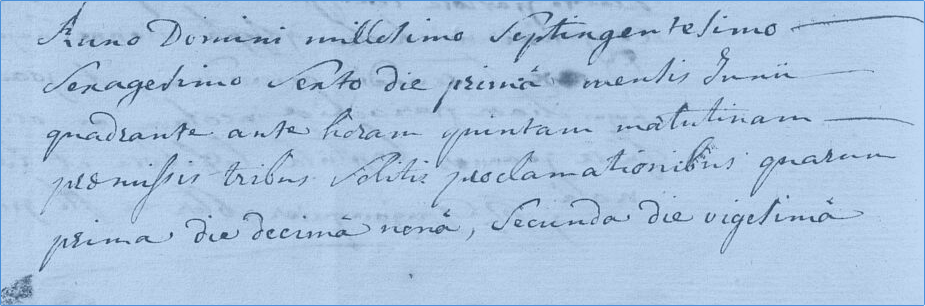 Anno Domini millesimo Septingentesimo
Sexagesimo Sexto die primâ mensis Junii
quadrante ante horam quintam matutinam
præmissis tribus Solitis proclamationibus quarum
prima die decimâ nonâ, Secunda die vigesimâ